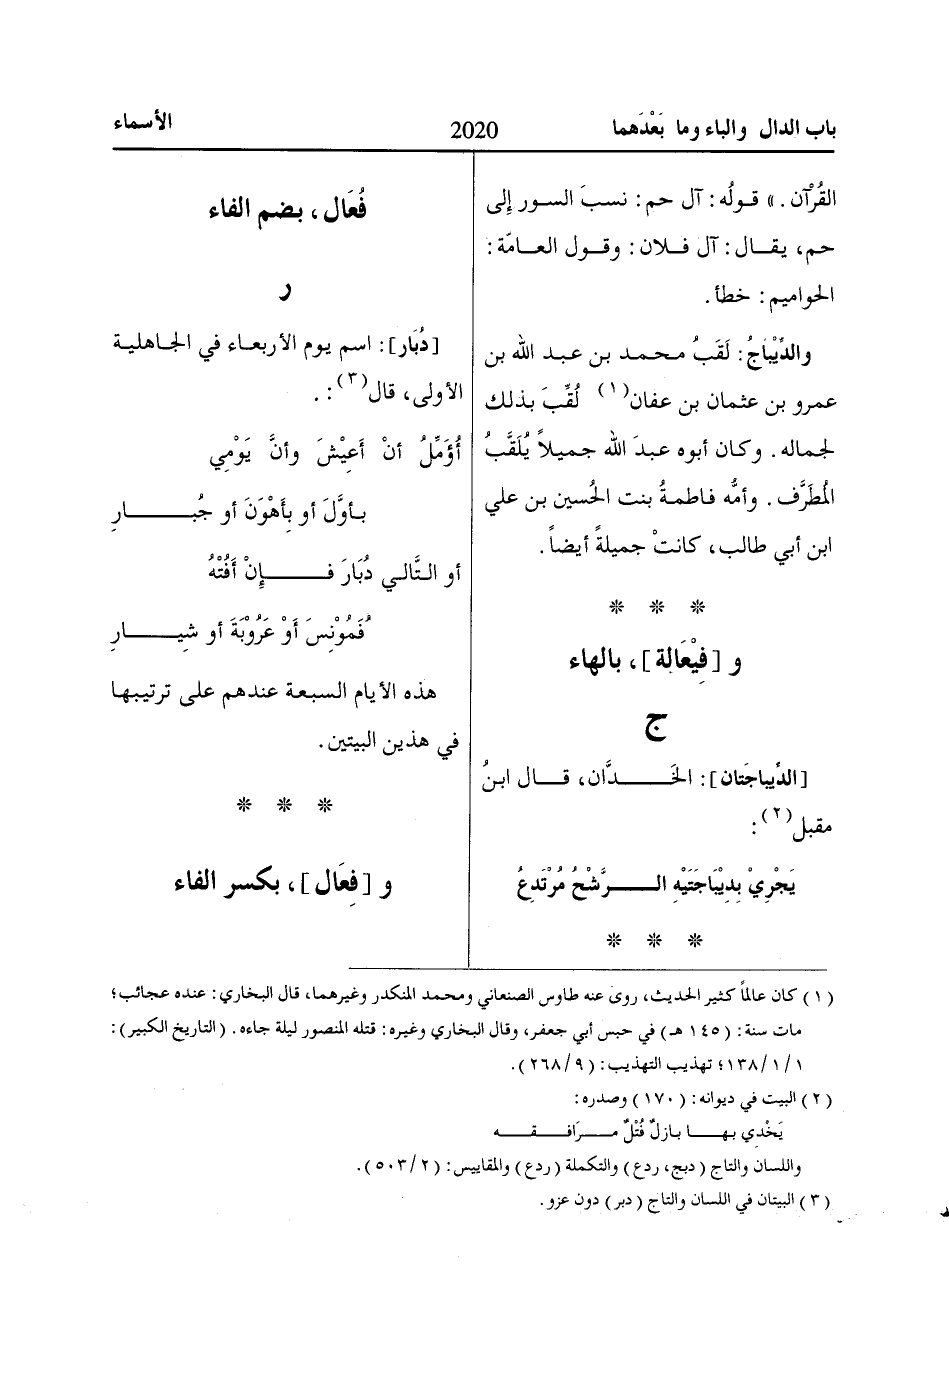 باب الدال والباء وما بَعْدَهما
2020
الأسماء
القُرْآن.» قـولُه: آل حم: نسبَ السور إلى
حم، يقـال: آل فـلان: وقـول العـامّة:
الحواميم: خطأ.
والدِّيْبَاجُ: لَقَبُ محمد بن عبد الله بن
عمرو بن عثمان بن عفان(١) لُقِّبَ بذلك
لجماله. وكان أبوه عبدَ الله جميلاً يُلَقَّبُ
المُطَرَّف. وأمُّه فاطمةُ بنت الحُسين بن علي
ابن أبي طالب، كانتْ جميلةً أيضاً.
* * *
و [فِيْعَالة]، بالهاء
ج
[الدِّيباجَتان]: الخَـدَّان، قـال ابنُ
مقبل(٢):
يَجْرِيْ بِدِيْبَاجَتَيْهِ الـرَّشْحُ مُرْتَدِعُ
* * *
فُعَال، بضم الفاء
ر
[دُبَار]: اسم يوم الأربعاء في الجاهلية
الأولى، قال(٣):.
أُؤَمِّلُ أنْ أَعِيْشَ وأنَّ يَوْمِي
بأوَّلَ أو بأَهْوَنَ أو جُبـارِ
أو التَّالي دُبَارَ فـإنْ أَفُتْهُ
فَمُوْنِسَ أَوْ عَرُوْبَةَ أو شِيـارِ
هذه الأيام السبعة عندهم على ترتيبها
في هذين البيتين.
* * *
و [فِعَال]، بكسر الفاء
(١) كان عالماً كثير الحديث، روى عنه طاوس الصنعاني ومحمد المنكدر وغيرهما، قال البخاري: عنده عجائب؛
مات سنة: (١٤٥ هـ) في حبس أبي جعفر، وقال البخاري وغيره: قتله المنصور ليلة جاءه. (التاريخ الكبير):
١/١/١٣٨؛ تهذيب التهذيب: (٩/٢٦٨).
(٢) البيت في ديوانه: (١٧٠) وصدره:
يَخْدي بهـا بازلٌ فُتْلٌ مـرَافـقـه
واللسان والتاج (دبج، ردع) والتكملة (ردع) والمقاييس: (٢/٥٠٣).
(٣) البيتان في اللسان والتاج (دبر) دون عزو.